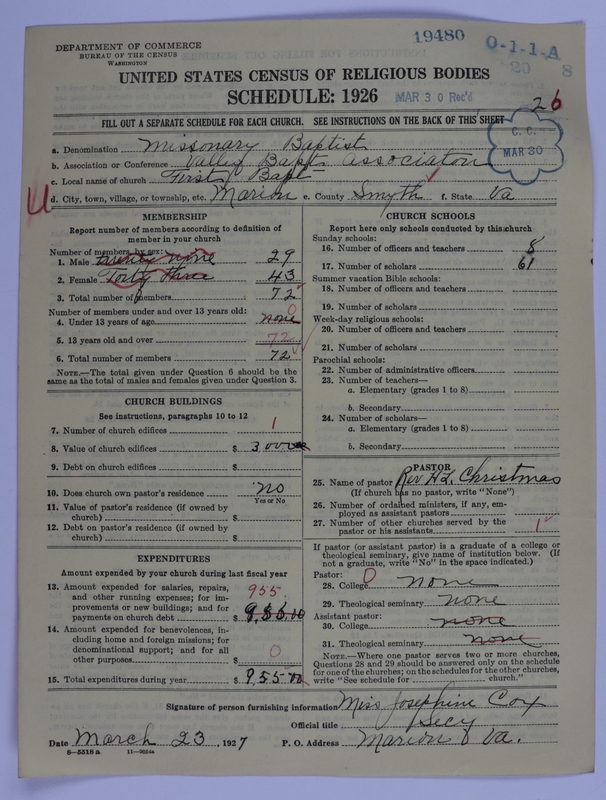 19480
O-1-1-A
20 8
DEPARTMENT OF COMMERCE
BUREAU OF THE CENSUS
WASHINGTON
UNITED STATES CENSUS OF RELIGIOUS BODIES
SCHEDULE: 1926
MAR 30 Rec'd
26
FILL OUT A SEPARATE SCHEDULE FOR EACH CHURCH. SEE INSTRUCTIONS ON THE BACK OF THIS SHEET
C. C.
MAR 30
a. Denomination Missonary Baptist
b. Association or Conference Valley Bapt Associaton
c. Local name of church First Bapt
d. City, town, village, or township, etc. Marion e. County Smyth f. State Va
MEMBERSHIP
Report number of members according to definition of
member in your church
Number of members, by sex:
1. Male twenty nine 29
2. Female Forty three 43
3. Total number of members 72
Number of members under and over 13 years old: 0
4. Under 13 years of age none
5. 13 years old and over 72
6. Total number of members 72
NOTE.—The total given under Question 6 should be the
same as the total of males and females given under Question 3.
CHURCH BUILDINGS
See instructions, paragraphs 10 to 12
7. Number of church edifices 1
8. Value of church edifices $ 3,000
9. Debt on church edifices $
10. Does church own pastor's residence no
Yes or No
11. Value of pastor's residence (if owned by
church) $
12. Debt on pastor's residence (if owned by
church) $
EXPENDITURES
Amount expended by your church during last fiscal year
13. Amount expended for salaries, repairs, 955
and other running expenses; for im-
provements or new buildings; and for
payments on church debt $
14. Amount expended for benevolences, in-
cluding home and foreign missions; for
denominational support; and for all
other purposes $ 0
15. Total expenditures during year $ 955
CHURCH SCHOOLS
Report here only schools conducted by this church
Sunday schools:
16. Number of officers and teachers 8
17. Number of scholars 61
Summer vacation Bible schools:
18. Number of officers and teachers
19. Number of scholars
Week-day religious schools:
20. Number of officers and teachers
21. Number of scholars
Parochial schools:
22. Number of administrative officers
23. Number of teachers—
a. Elementary (grades 1 to 8)
b. Secondary
24. Number of scholars—
a. Elementary (grades 1 to 8)
b. Secondary
PASTOR
25. Name of pastor Rev H L Christmas
(If church has no pastor, write "None")
26. Number of ordained ministers, if any, em-
ployed as assistant pastors
27. Number of other churches served by the
pastor or his assistants 1
If pastor (or assistant pastor) is a graduate of a college or
theological seminary, give name of institution below. (If
not a graduate, write "No" in the space indicated.)
Pastor: 0
28. College none
29. Theological seminary none
Assistant pastor:
30. College none
31. Theological seminary none
NOTE.—Where one pastor serves two or more churches,
Questions 28 and 29 should be answered only on the schedule
for one of the churches; on the schedules for the other churches,
write "See schedule for church."
Signature of person furnishing information Miss Josephine Cox
Official title Secy
Date March 23, 1927 P. O. Address Marion Va.
8—5518 a